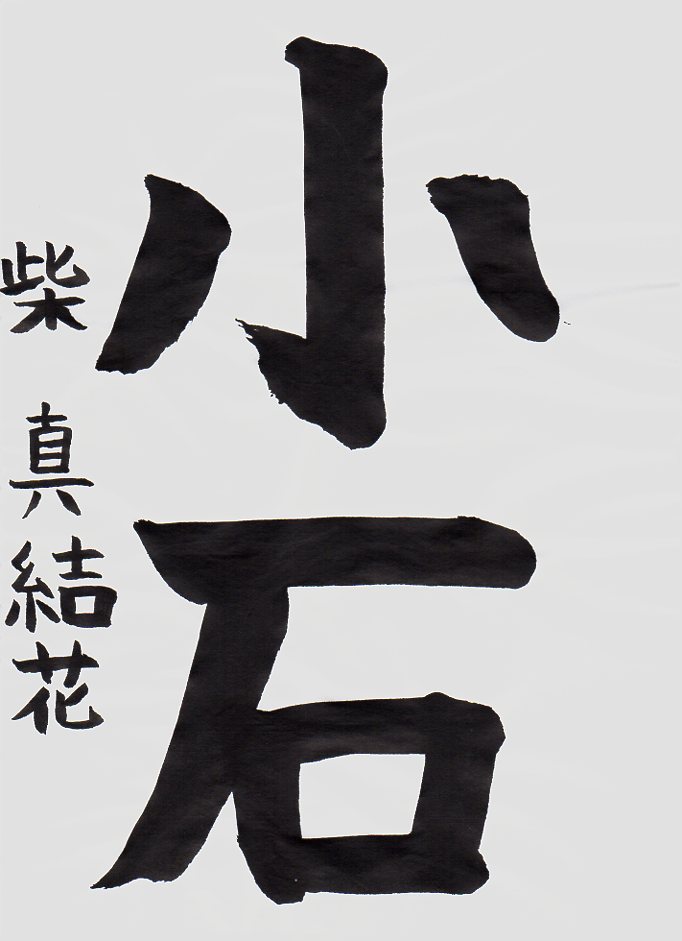 小石
柴 真結花